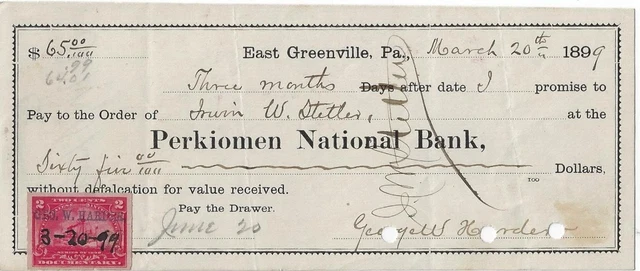 $ 65.00/100 East Greenville, Pa., March 20th 1899
Three months Days after date I promise to
Pay to the Order of Irwin W. Stetler, at the
Perkiomen National Bank,
Sixty five 00/100 Dollars,
100
without defalcation for value received.
Pay the Drawer.
June 20
George W
TWO CENTS
2 2
GEO. W.
3-20-99
DOCUMENTARY.